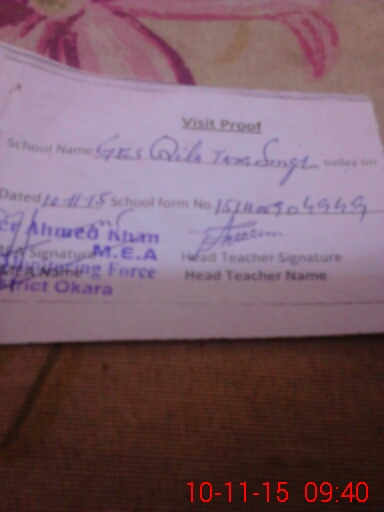 Visit Proof
School Name GES Qila Tara Singh today on
Dated 10-11-15 School form No
Ahmed Khan
Signature M.E.A Head Teacher Signature
Monitoring Force Head Teacher Name
District Okara
10-11-15 09:40